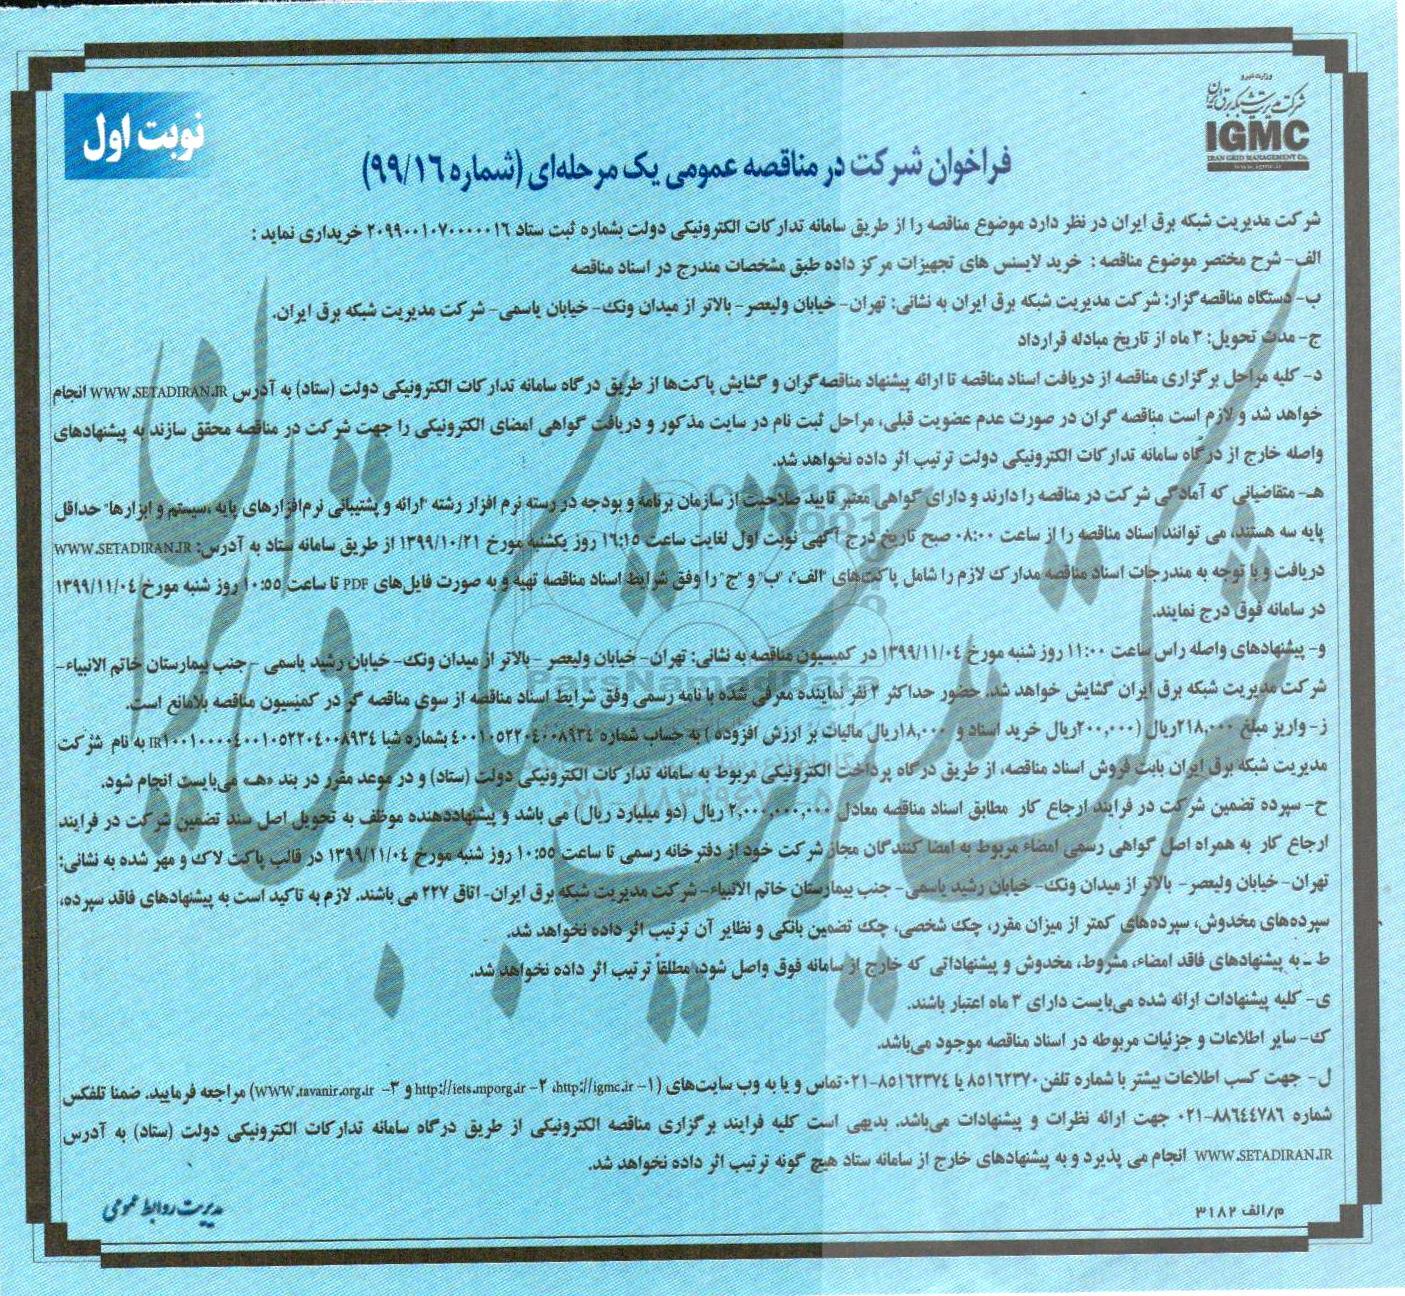 وزارت نیرو
شرکت مدیریت شبکه برق ایران
IGMC
IRAN GRID MANAGEMENT Co.
www.igmc.ir
نوبت اول
فراخوان شرکت در مناقصه عمومی یک مرحله‌ای (شماره ۹۹/۱۶)
شرکت مدیریت شبکه برق ایران در نظر دارد موضوع مناقصه را از طریق سامانه تدارکات الکترونیکی دولت بشماره ثبت ستاد ۲۰۹۹۰۰۱۰۷۰۰۰۰۰۱۶ خریداری نماید :
الف- شرح مختصر موضوع مناقصه : خرید لایسنس های تجهیزات مرکز داده طبق مشخصات مندرج در اسناد مناقصه
ب- دستگاه مناقصه‌گزار: شرکت مدیریت شبکه برق ایران به نشانی: تهران- خیابان ولیعصر- بالاتر از میدان ونک- خیابان یاسمی- شرکت مدیریت شبکه برق ایران.
ج- مدت تحویل: ۳ ماه از تاریخ مبادله قرارداد
د- کلیه مراحل برگزاری مناقصه از دریافت اسناد مناقصه تا ارائه پیشنهاد مناقصه‌گران و گشایش پاکت‌ها از طریق درگاه سامانه تدارکات الکترونیکی دولت (ستاد) به آدرس WWW.SETADIRAN.IR انجام
خواهد شد و لازم است مناقصه گران در صورت عدم عضویت قبلی، مراحل ثبت نام در سایت مذکور و دریافت گواهی امضای الکترونیکی را جهت شرکت در مناقصه محقق سازند به پیشنهادهای
واصله خارج از درگاه سامانه تدارکات الکترونیکی دولت ترتیب اثر داده نخواهد شد.
هـ- متقاضیانی که آمادگی شرکت در مناقصه را دارند و دارای گواهی معتبر تایید صلاحیت از سازمان برنامه و بودجه در رسته نرم افزار رشته "ارائه و پشتیبانی نرم‌افزارهای پایه ،سیستم و ابزارها" حداقل
پایه سه هستند، می توانند اسناد مناقصه را از ساعت ۰۸:۰۰ صبح تاریخ درج آگهی نوبت اول لغایت ساعت ۱۶:۱۵ روز یکشنبه مورخ ۱۳۹۹/۱۰/۲۱ از طریق سامانه ستاد به آدرس: WWW.SETADIRAN.IR
دریافت و با توجه به مندرجات اسناد مناقصه مدارک لازم را شامل پاکت‌های "الف"، "ب" و "ج" را وفق شرایط اسناد مناقصه تهیه و به صورت فایل‌های PDF تا ساعت ۱۰:۵۵ روز شنبه مورخ ۱۳۹۹/۱۱/۰۴
در سامانه فوق درج نمایند.
و- پیشنهادهای واصله راس ساعت ۱۱:۰۰ روز شنبه مورخ ۱۳۹۹/۱۱/۰۴ در کمیسیون مناقصه به نشانی: تهران- خیابان ولیعصر - بالاتر از میدان ونک- خیابان رشید یاسمی - جنب بیمارستان خاتم الانبیاء-
شرکت مدیریت شبکه برق ایران گشایش خواهد شد. حضور حداکثر ۲ نفر نماینده معرفی شده با نامه رسمی وفق شرایط اسناد مناقصه از سوی مناقصه گر در کمیسیون مناقصه بلامانع است.
ز- واریز مبلغ ۲۱۸,۰۰۰ریال (۲۰۰,۰۰۰ریال خرید اسناد و ۱۸,۰۰۰ریال مالیات بر ارزش افزوده ) به حساب شماره ۴۰۰۱۰۵۲۲۰۴۰۰۸۹۳۴ بشماره شبا IR۱۰۰۱۰۰۰۰۴۰۰۱۰۵۲۲۰۴۰۰۸۹۳۴ به نام شرکت
مدیریت شبکه برق ایران بابت فروش اسناد مناقصه، از طریق درگاه پرداخت الکترونیکی مربوط به سامانه تدارکات الکترونیکی دولت (ستاد) و در موعد مقرر در بند «هـ» می‌بایست انجام شود.
ح- سپرده تضمین شرکت در فرایند ارجاع کار مطابق اسناد مناقصه معادل ۲,۰۰۰,۰۰۰,۰۰۰ ریال (دو میلیارد ریال) می باشد و پیشنهاددهنده موظف به تحویل اصل سند تضمین شرکت در فرایند
ارجاع کار به همراه اصل گواهی رسمی امضاء مربوط به امضا کنندگان مجاز شرکت خود از دفترخانه رسمی تا ساعت ۱۰:۵۵ روز شنبه مورخ ۱۳۹۹/۱۱/۰۴ در قالب پاکت لاک و مهر شده به نشانی:
تهران- خیابان ولیعصر- بالاتر از میدان ونک- خیابان رشید یاسمی- جنب بیمارستان خاتم الانبیاء- شرکت مدیریت شبکه برق ایران- اتاق ۲۲۷ می باشند. لازم به تاکید است به پیشنهادهای فاقد سپرده،
سپرده‌های مخدوش، سپرده‌های کمتر از میزان مقرر، چک شخصی، چک تضمین بانکی و نظایر آن ترتیب اثر داده نخواهد شد.
ط - به پیشنهادهای فاقد امضاء، مشروط، مخدوش و پیشنهاداتی که خارج از سامانه فوق واصل شود، مطلقاً ترتیب اثر داده نخواهد شد.
ی- کلیه پیشنهادات ارائه شده می‌بایست دارای ۳ ماه اعتبار باشند.
ک- سایر اطلاعات و جزئیات مربوطه در اسناد مناقصه موجود می‌باشد.
ل- جهت کسب اطلاعات بیشتر با شماره تلفن۸۵۱۶۲۳۷۰ یا ۸۵۱۶۲۳۷۴-۰۲۱تماس و یا به وب سایت‌های (۱- http://igmc.ir، ۲- http://iets.mporg.ir و ۳- WWW.tavanir.org.ir) مراجعه فرمایید. ضمنا تلفکس
شماره ۸۸۶۴۴۷۸۶-۰۲۱ جهت ارائه نظرات و پیشنهادات می‌باشد. بدیهی است کلیه فرایند برگزاری مناقصه الکترونیکی از طریق درگاه سامانه تدارکات الکترونیکی دولت (ستاد) به آدرس
WWW.SETADIRAN.IR انجام می پذیرد و به پیشنهادهای خارج از سامانه ستاد هیچ گونه ترتیب اثر داده نخواهد شد.
م/الف ۳۱۸۲
مدیریت روابط عمومی
ParsNamadData